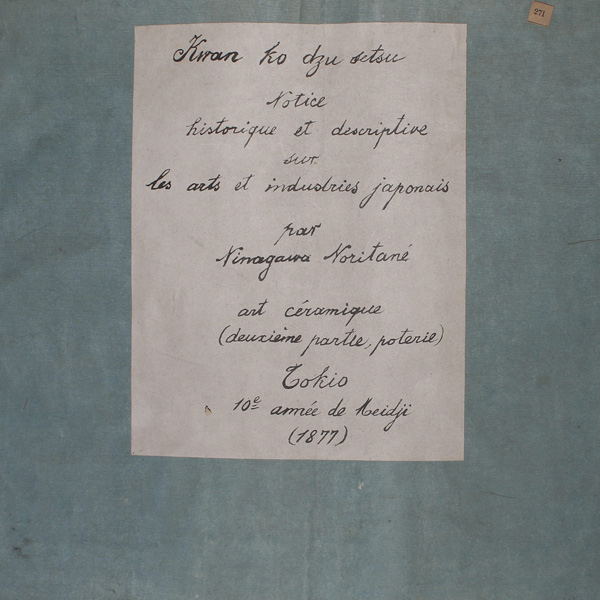 271
Kwan ko dzu setsu
Notice
historique et descriptive
sur
les arts et industries japonais
par
Ninagawa Noritané
art céramique
(deuxième partie, poterie)
Tokio
10e année de Meidji
(1877)